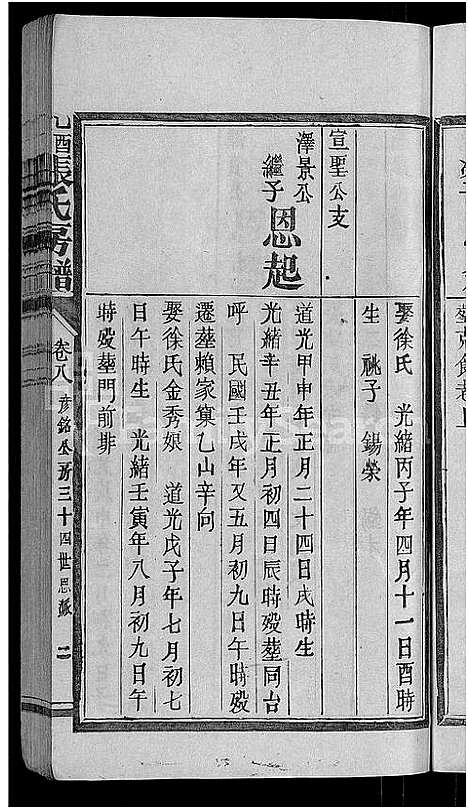 宣聖公支
澤景公
繼子 恩起
娶徐氏 光緒丙子年四月十一日酉時
生 祧子 錫榮
道光甲申年正月二十四日戌時生
光緒辛丑年正月初四日辰時歿塟同台
呼 民國壬戌年又五月初九日午時毀
遷塟賴家集乙山辛向
娶徐氏金秀娘 道光戊子年七月初七
日午時生 光緒壬寅年八月初九日午
時歿塟門前排
乙酉張氏房譜
卷八 彥銘公房三十四世恩派 二